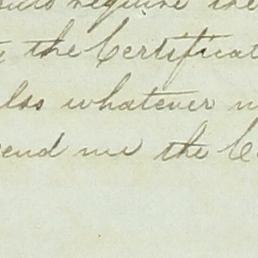 require the
the Certificat
also whatever
send me the C